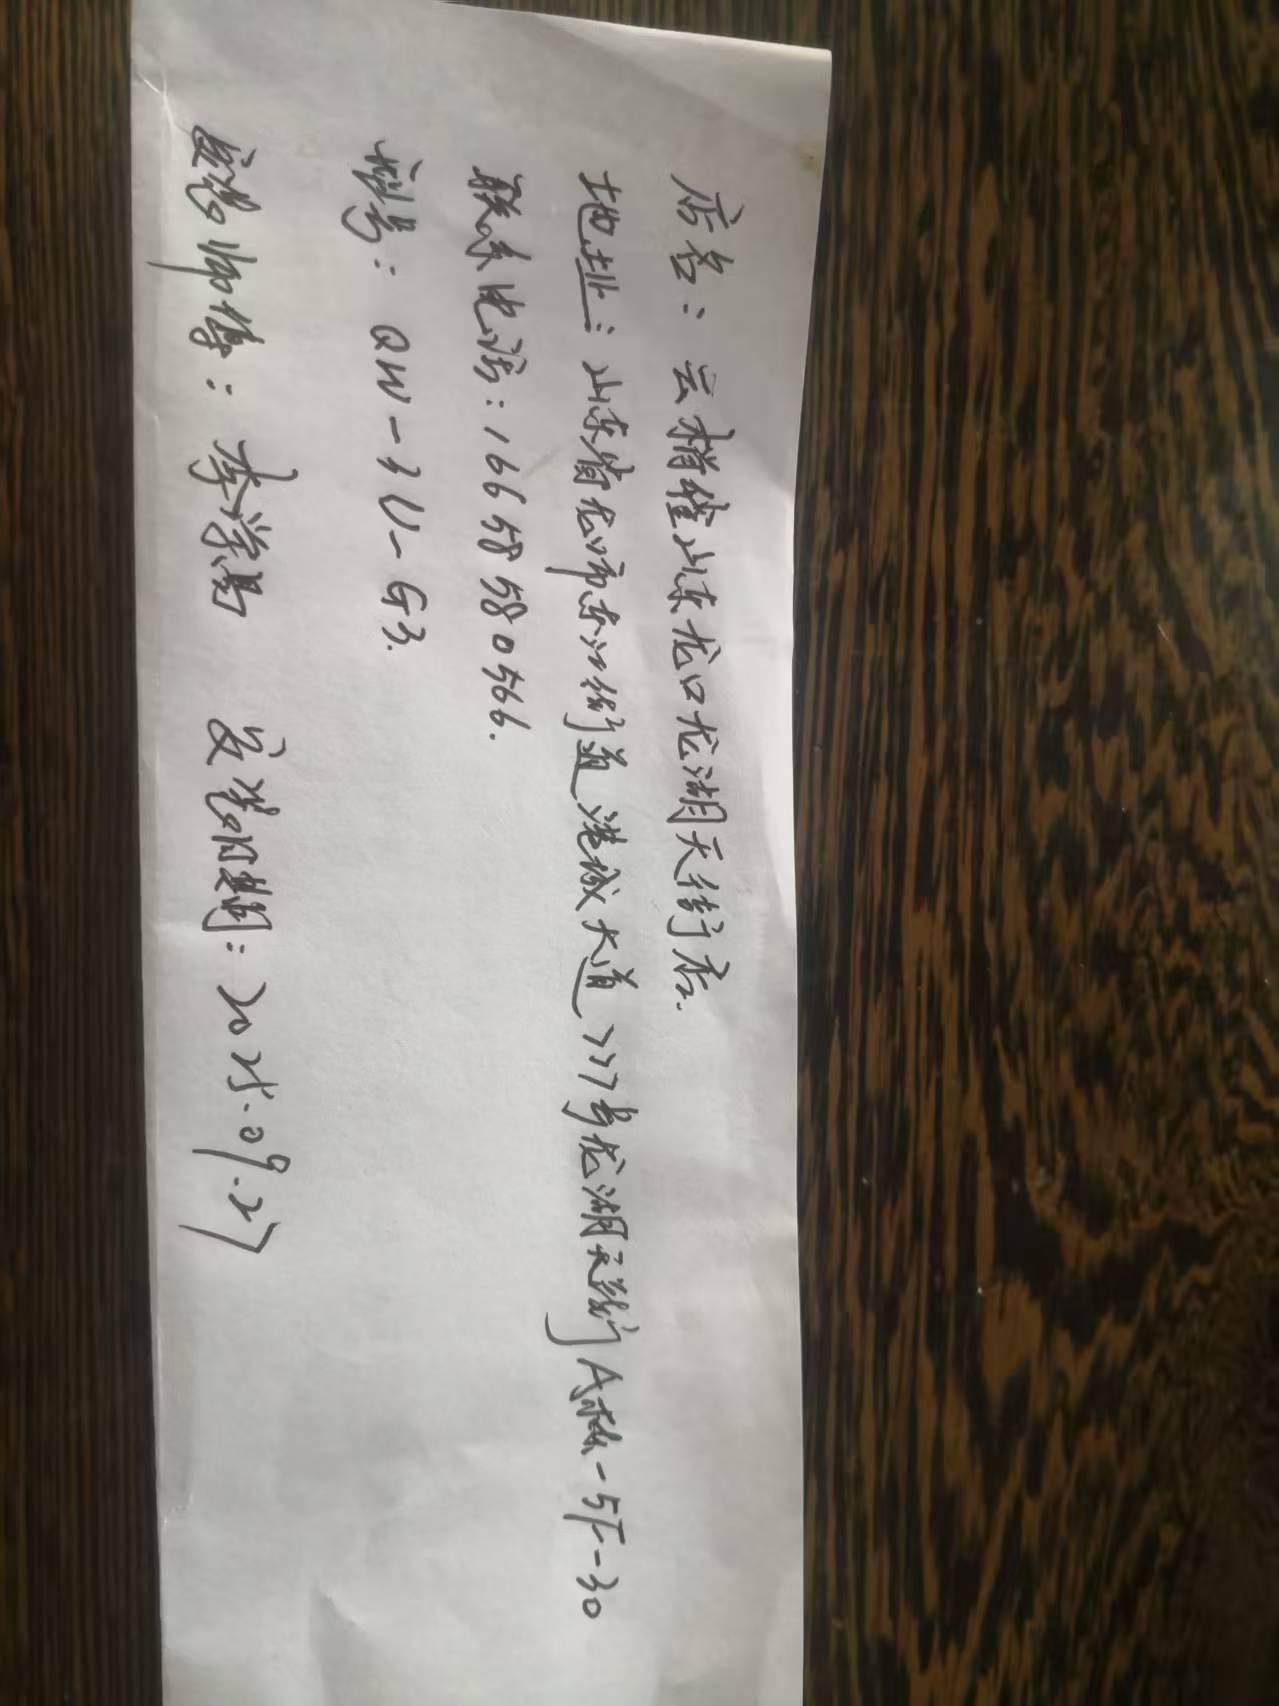 店名：云稍堆山东龙口龙湖天街店.
地址：山东省龙口市东江街道港城大道777号龙湖天街A栋-5F-30
联系电话：16658580566.
型号：QW-3U-G3.
安装师傅：李学勇 安装日期：2025.09.27